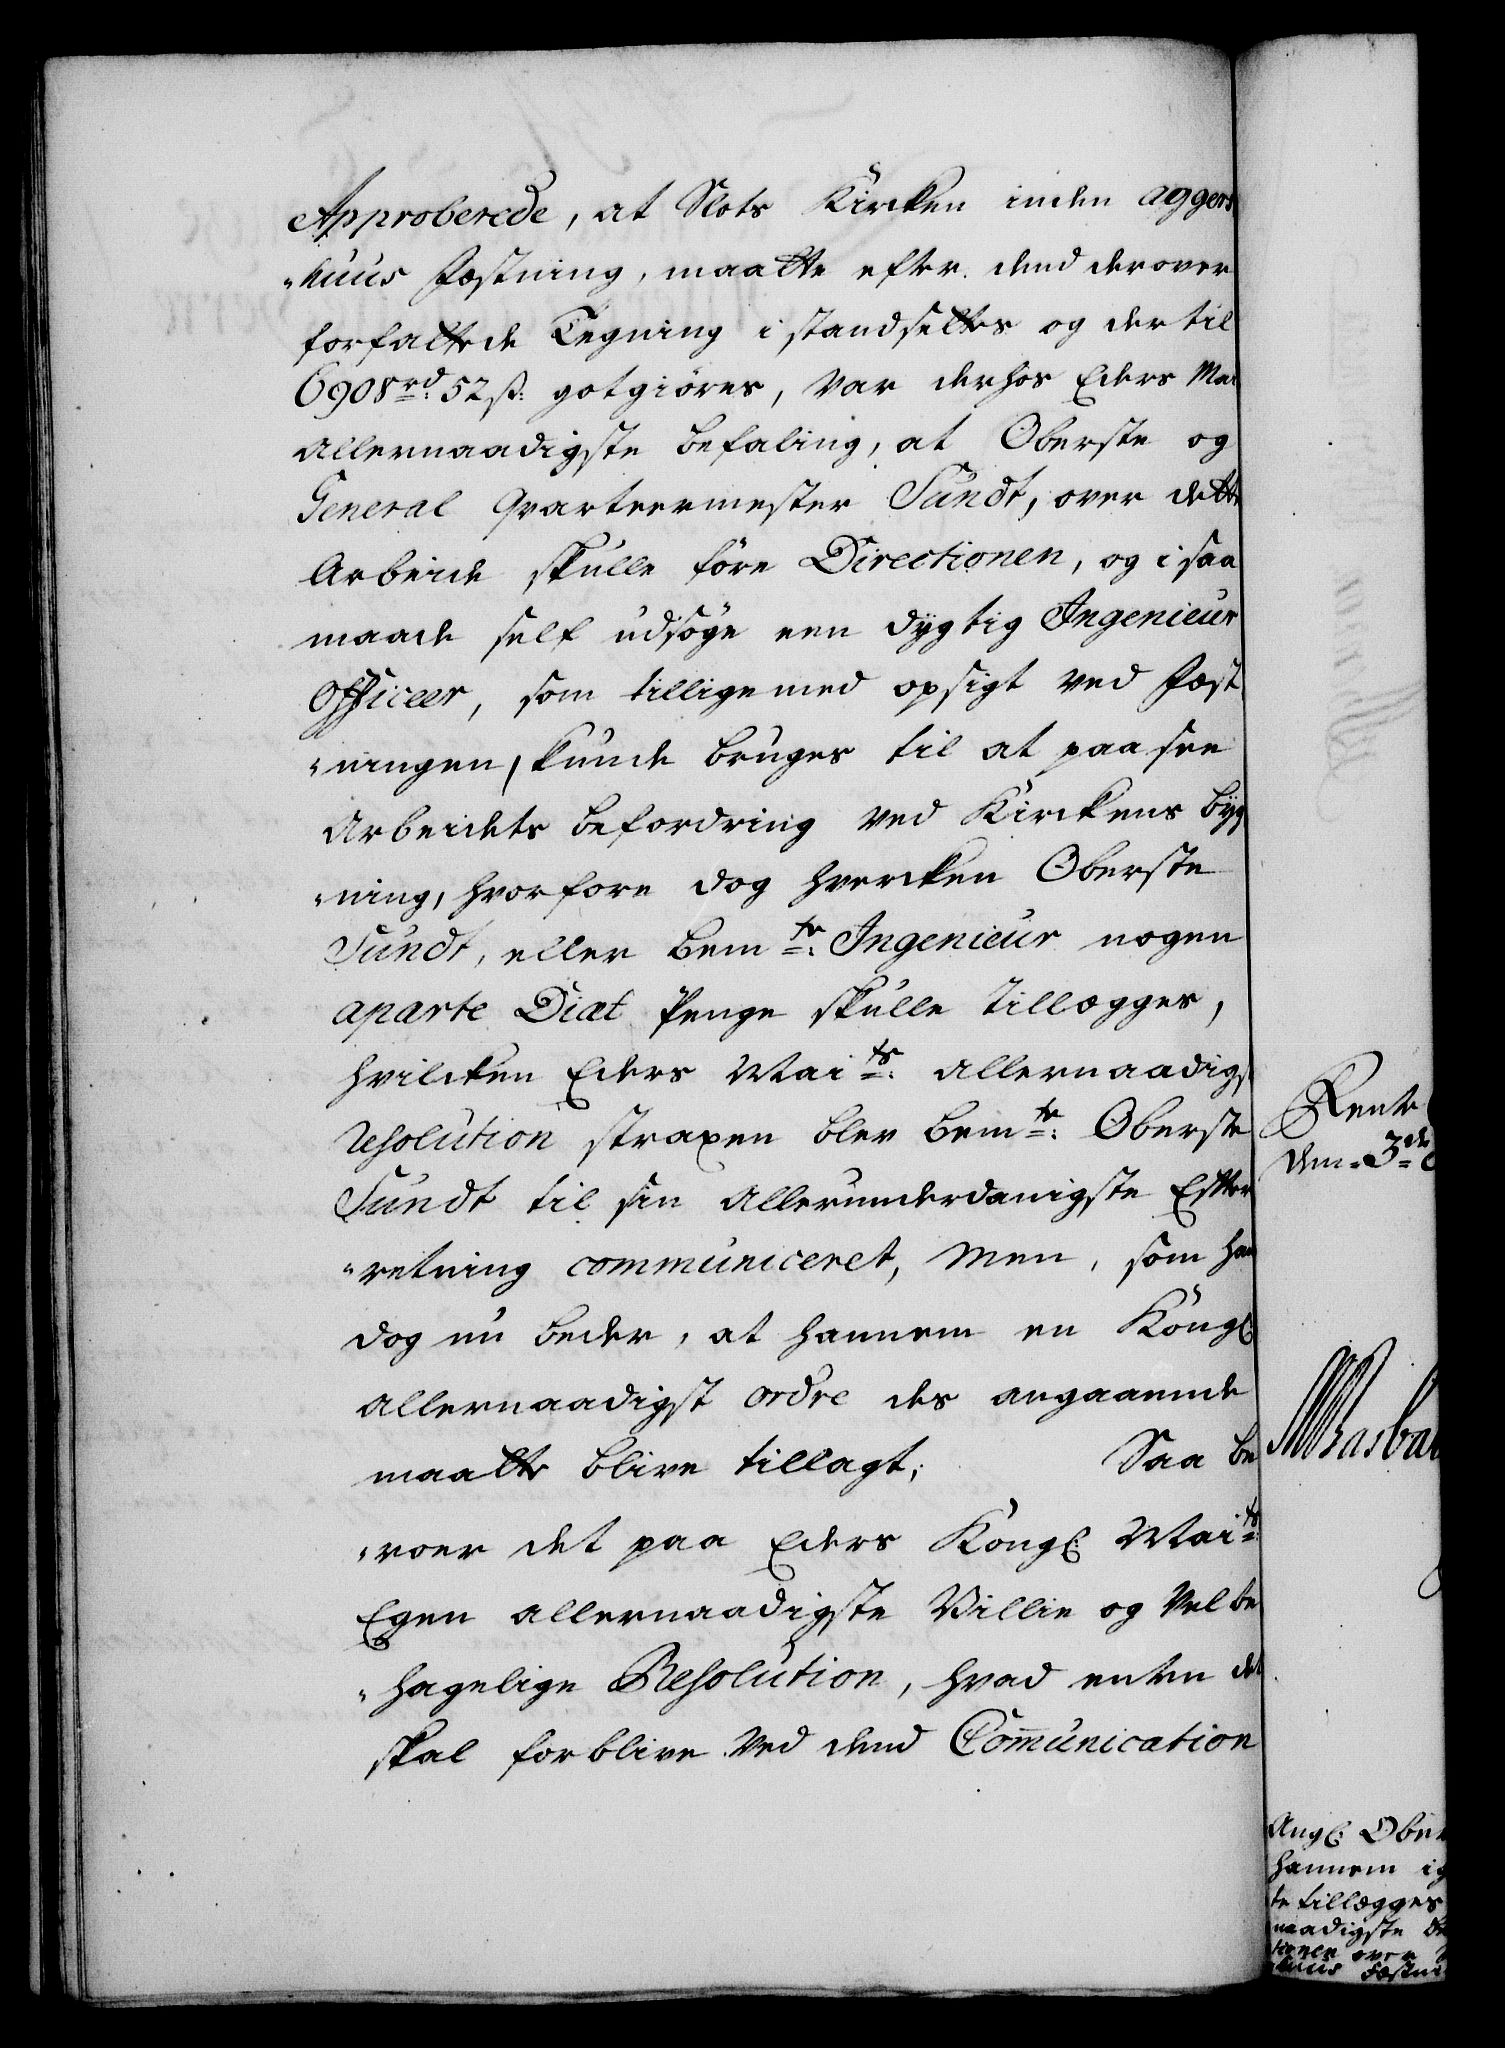 Approberede, at Slots Kircken inden Aggers
"huus Fæstning, maatte efter dend derover
forfattede Tegning i standsettes og dertil
6908 rd: 52 ß: gotgiöres, var derhos Eders Mai
allernaadigste befaling, at Oberste og
General Qvarteermester Sundt, over dette
Arbeide skulle före Directionen, og i saa
maade self udsöge een dygtig Ingenieur
Officeer, som tilligemed opsigt ved Fæst
"ningen, kunde bruges til at paa see
Arbeidets befordring ved Kirckens byg
"ning, hvorfore dog hvercken Oberste
Sundt, eller bemte: Ingenieur nogen
aparte Diæt Penge skulle tillægges,
hvilcken Eders Maits: allernaadigst
Resolution straxen blev bemte: Oberste
Sundt til sin allerunderdanigste Efter
"retning communiceret, Men, som han
dog nu beder, at hannem en Kongl:
allernaadigst ordre des angaaende
maatte blive tillagt; Saa be
"roer det paa Eders Kongl: Maits:
Egen allernaadigste Villie og Velbe
"hagelige Resolution, hvad enten det
skal forblive ved dend Communication
Rente
den 3de
Angl: Ober
hannem ig
te tillægges
naadigste Be
tionen over
huus Fæstni